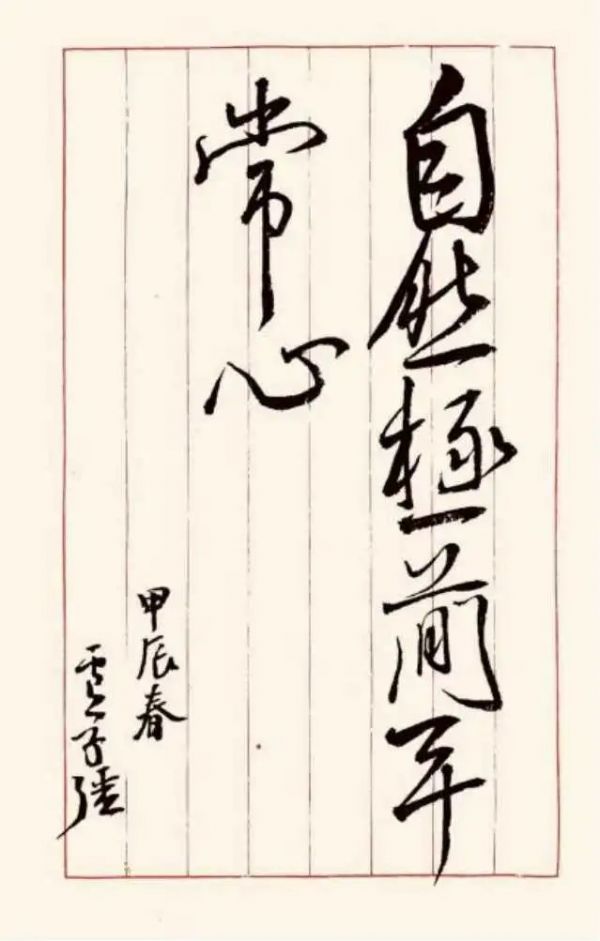 自然極簡平
常心
甲辰春
子